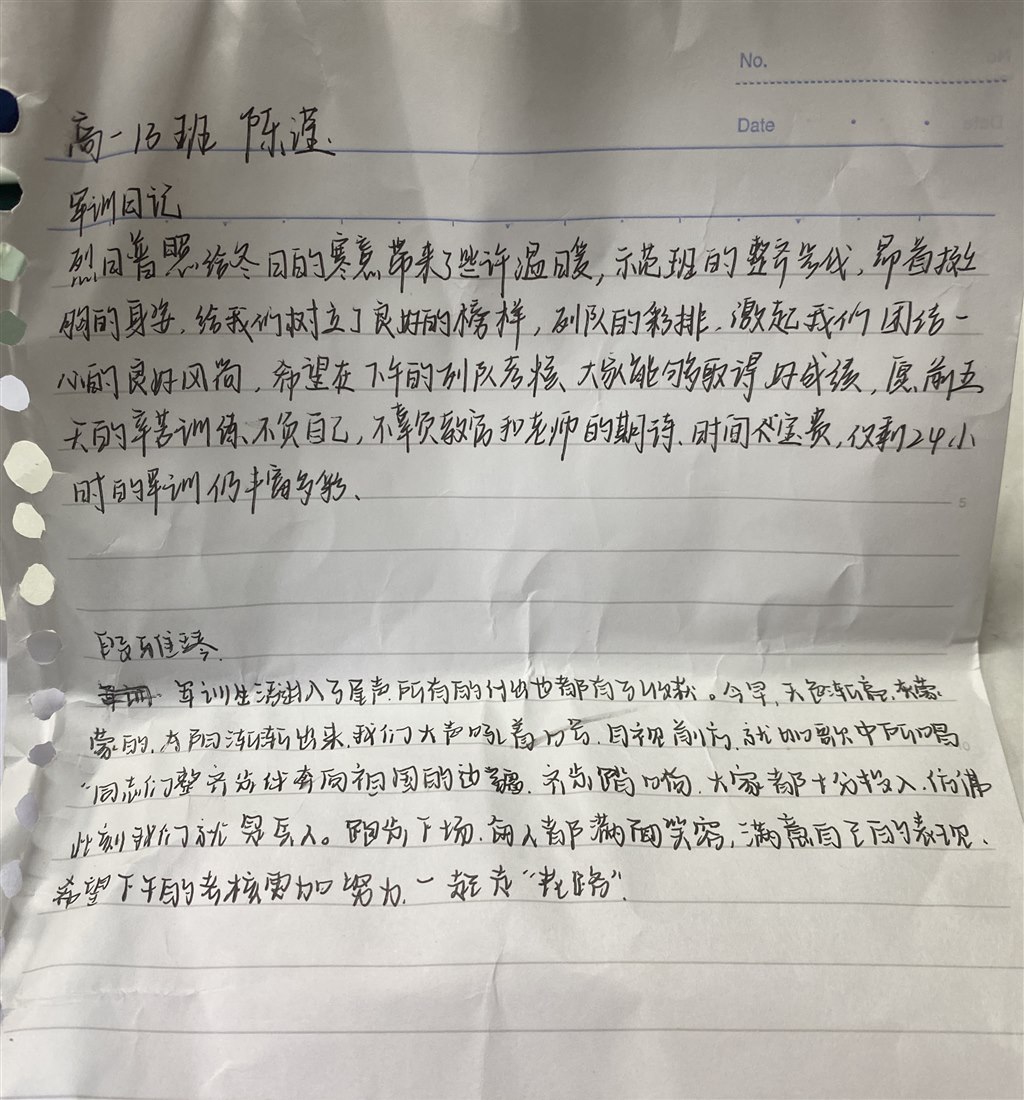 No.
Date
高一13班 陈谨.
军训日记
烈日普照给冬日的寒意带来了些许温暖,示范班的整齐步伐,昂首挺
胸的身姿,给我们树立了良好的榜样,列队的彩排,激起我们团结一
心的良好风尚,希望在下午的列队考核、大家能够取得好成绩,愿前五
天的辛苦训练、不负自己,不辜负教官和老师的期待、时间宝贵,仅剩24小
时的军训仍丰富多彩、
5
段雅琴.
军训生活进入了尾声.所有的付出也都有了收获。今早,天色渐亮,灰蒙
蒙的,太阳渐渐出来,我们大声吼着口号,目视前方,就如歌中所唱
"同志们整齐步伐奔向祖国的边疆,齐步踏口哨,大家都十分投入.仿佛
此刻我们就是兵人。跑步下场.每人都满面笑容,满意自己的表现、
希望下午的考核更加努力,一起走"